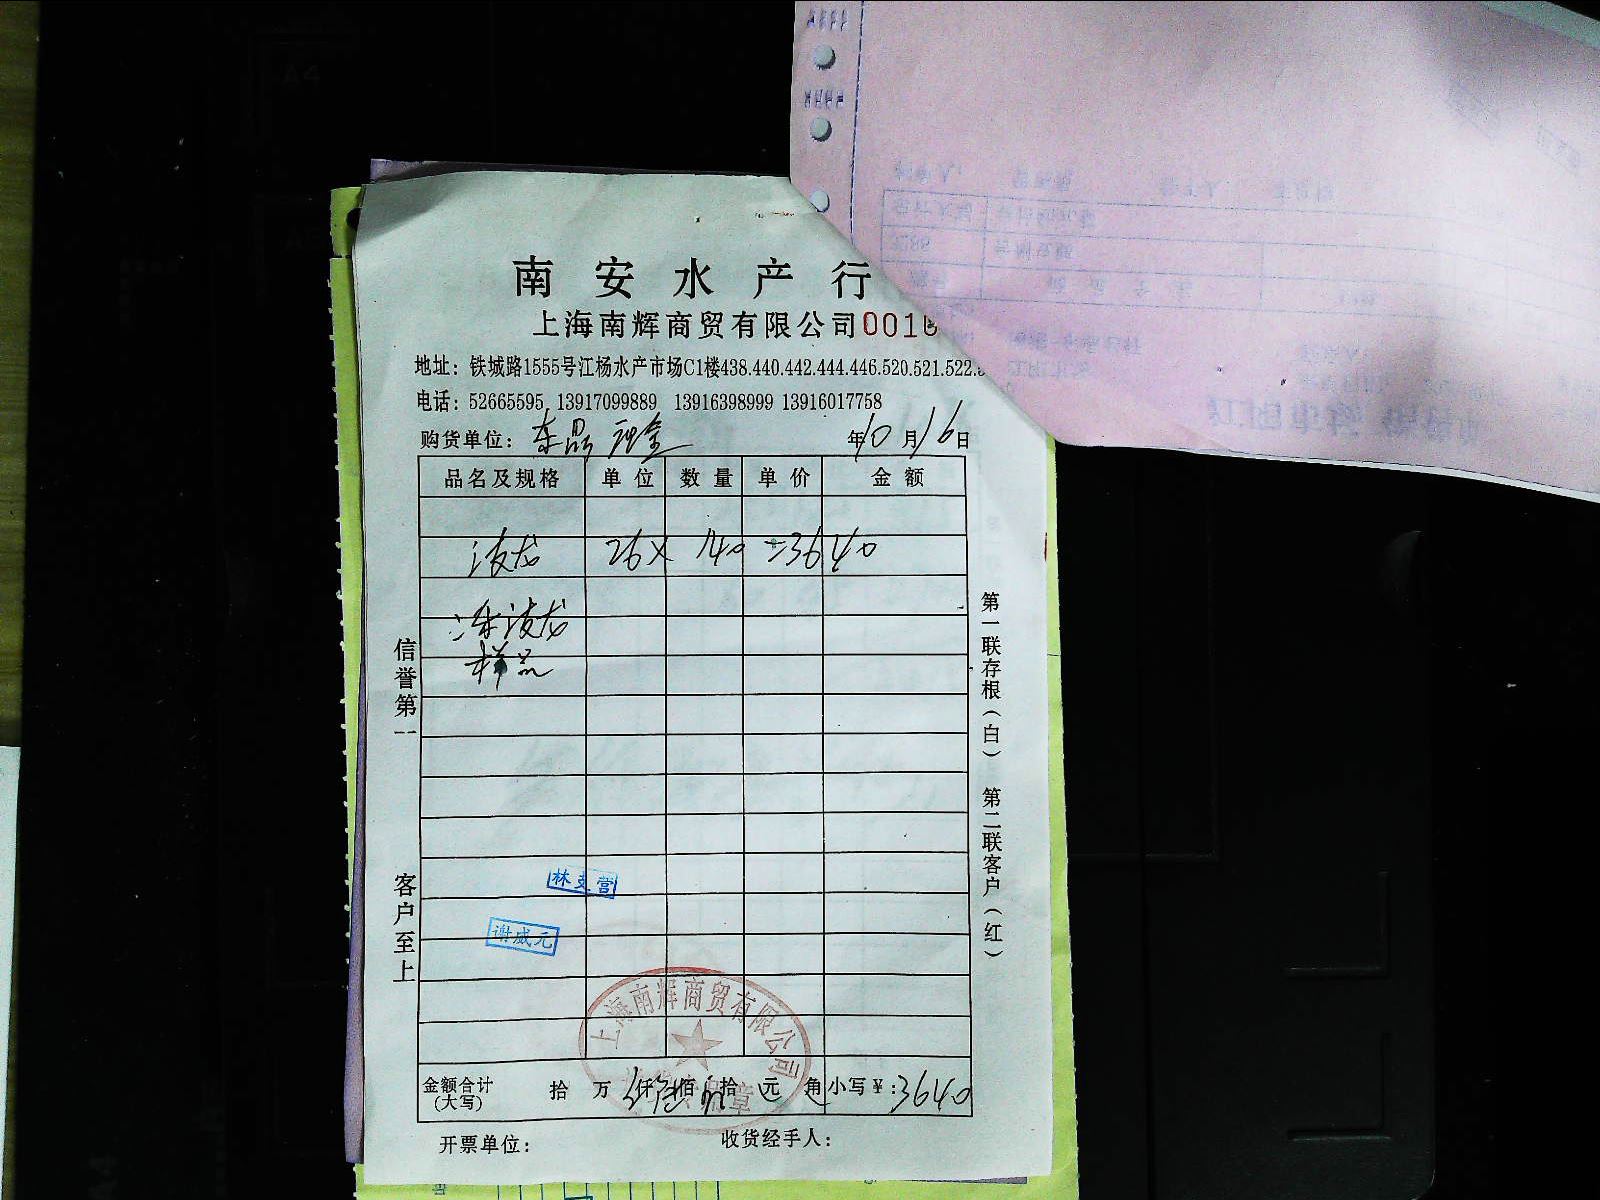 南安水产行
上海南辉商贸有限公司001
地址：铁城路1555号江杨水产市场C1楼438.440.442.444.446.520.521.522.
电话：52665595 13917099889 13916398999 13916017758
购货单位： 年10月16日
品名及规格 单位 数量 单价 金额
波龙 26× 140 =3640
冻波龙
样品
信誉第一
客户至上
第一联存根（白）
第二联客户（红）
林支营
谢威元
上海南辉商贸有限公司
金额合计 拾 万 仟 佰 拾 元 角 小写¥:3640
(大写)
开票单位： 收货经手人：